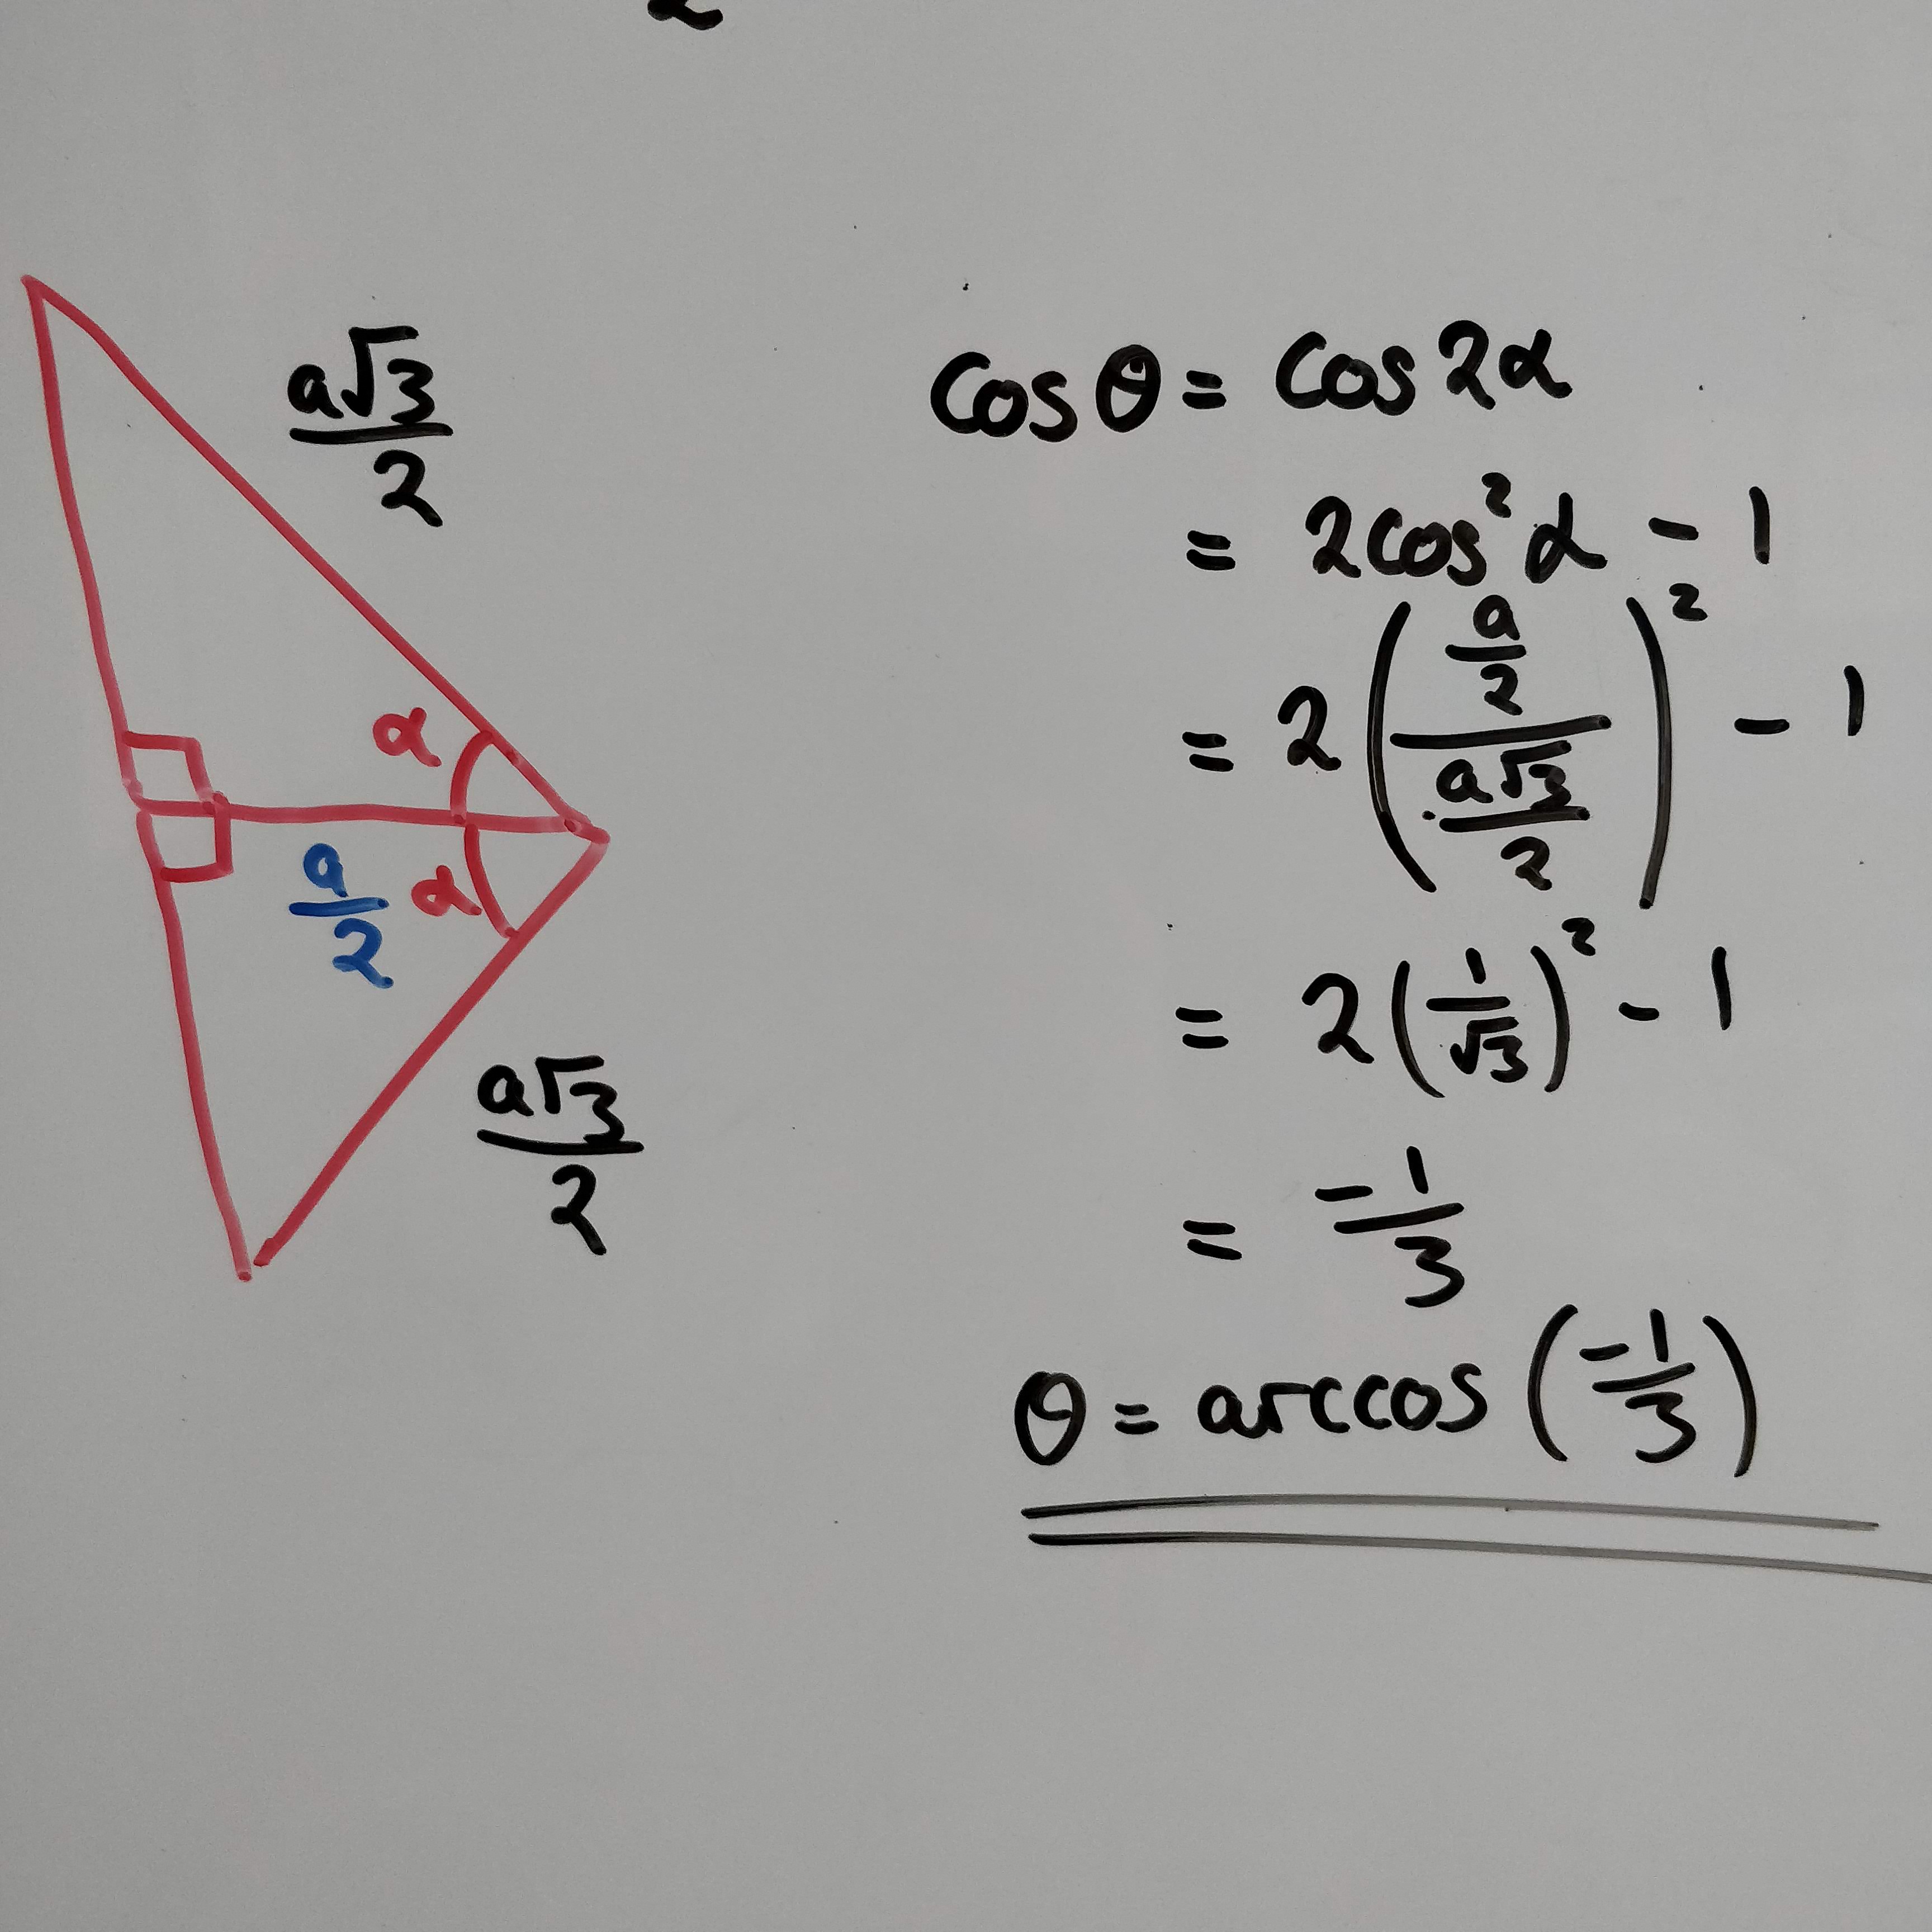 a√3/2
α
a/2
α
a√3/2
cos θ = cos 2α
= 2cos²α - 1
= 2((a/2)/(a√3/2))² - 1
= 2(1/√3)² - 1
= -1/3
θ = arccos(-1/3)